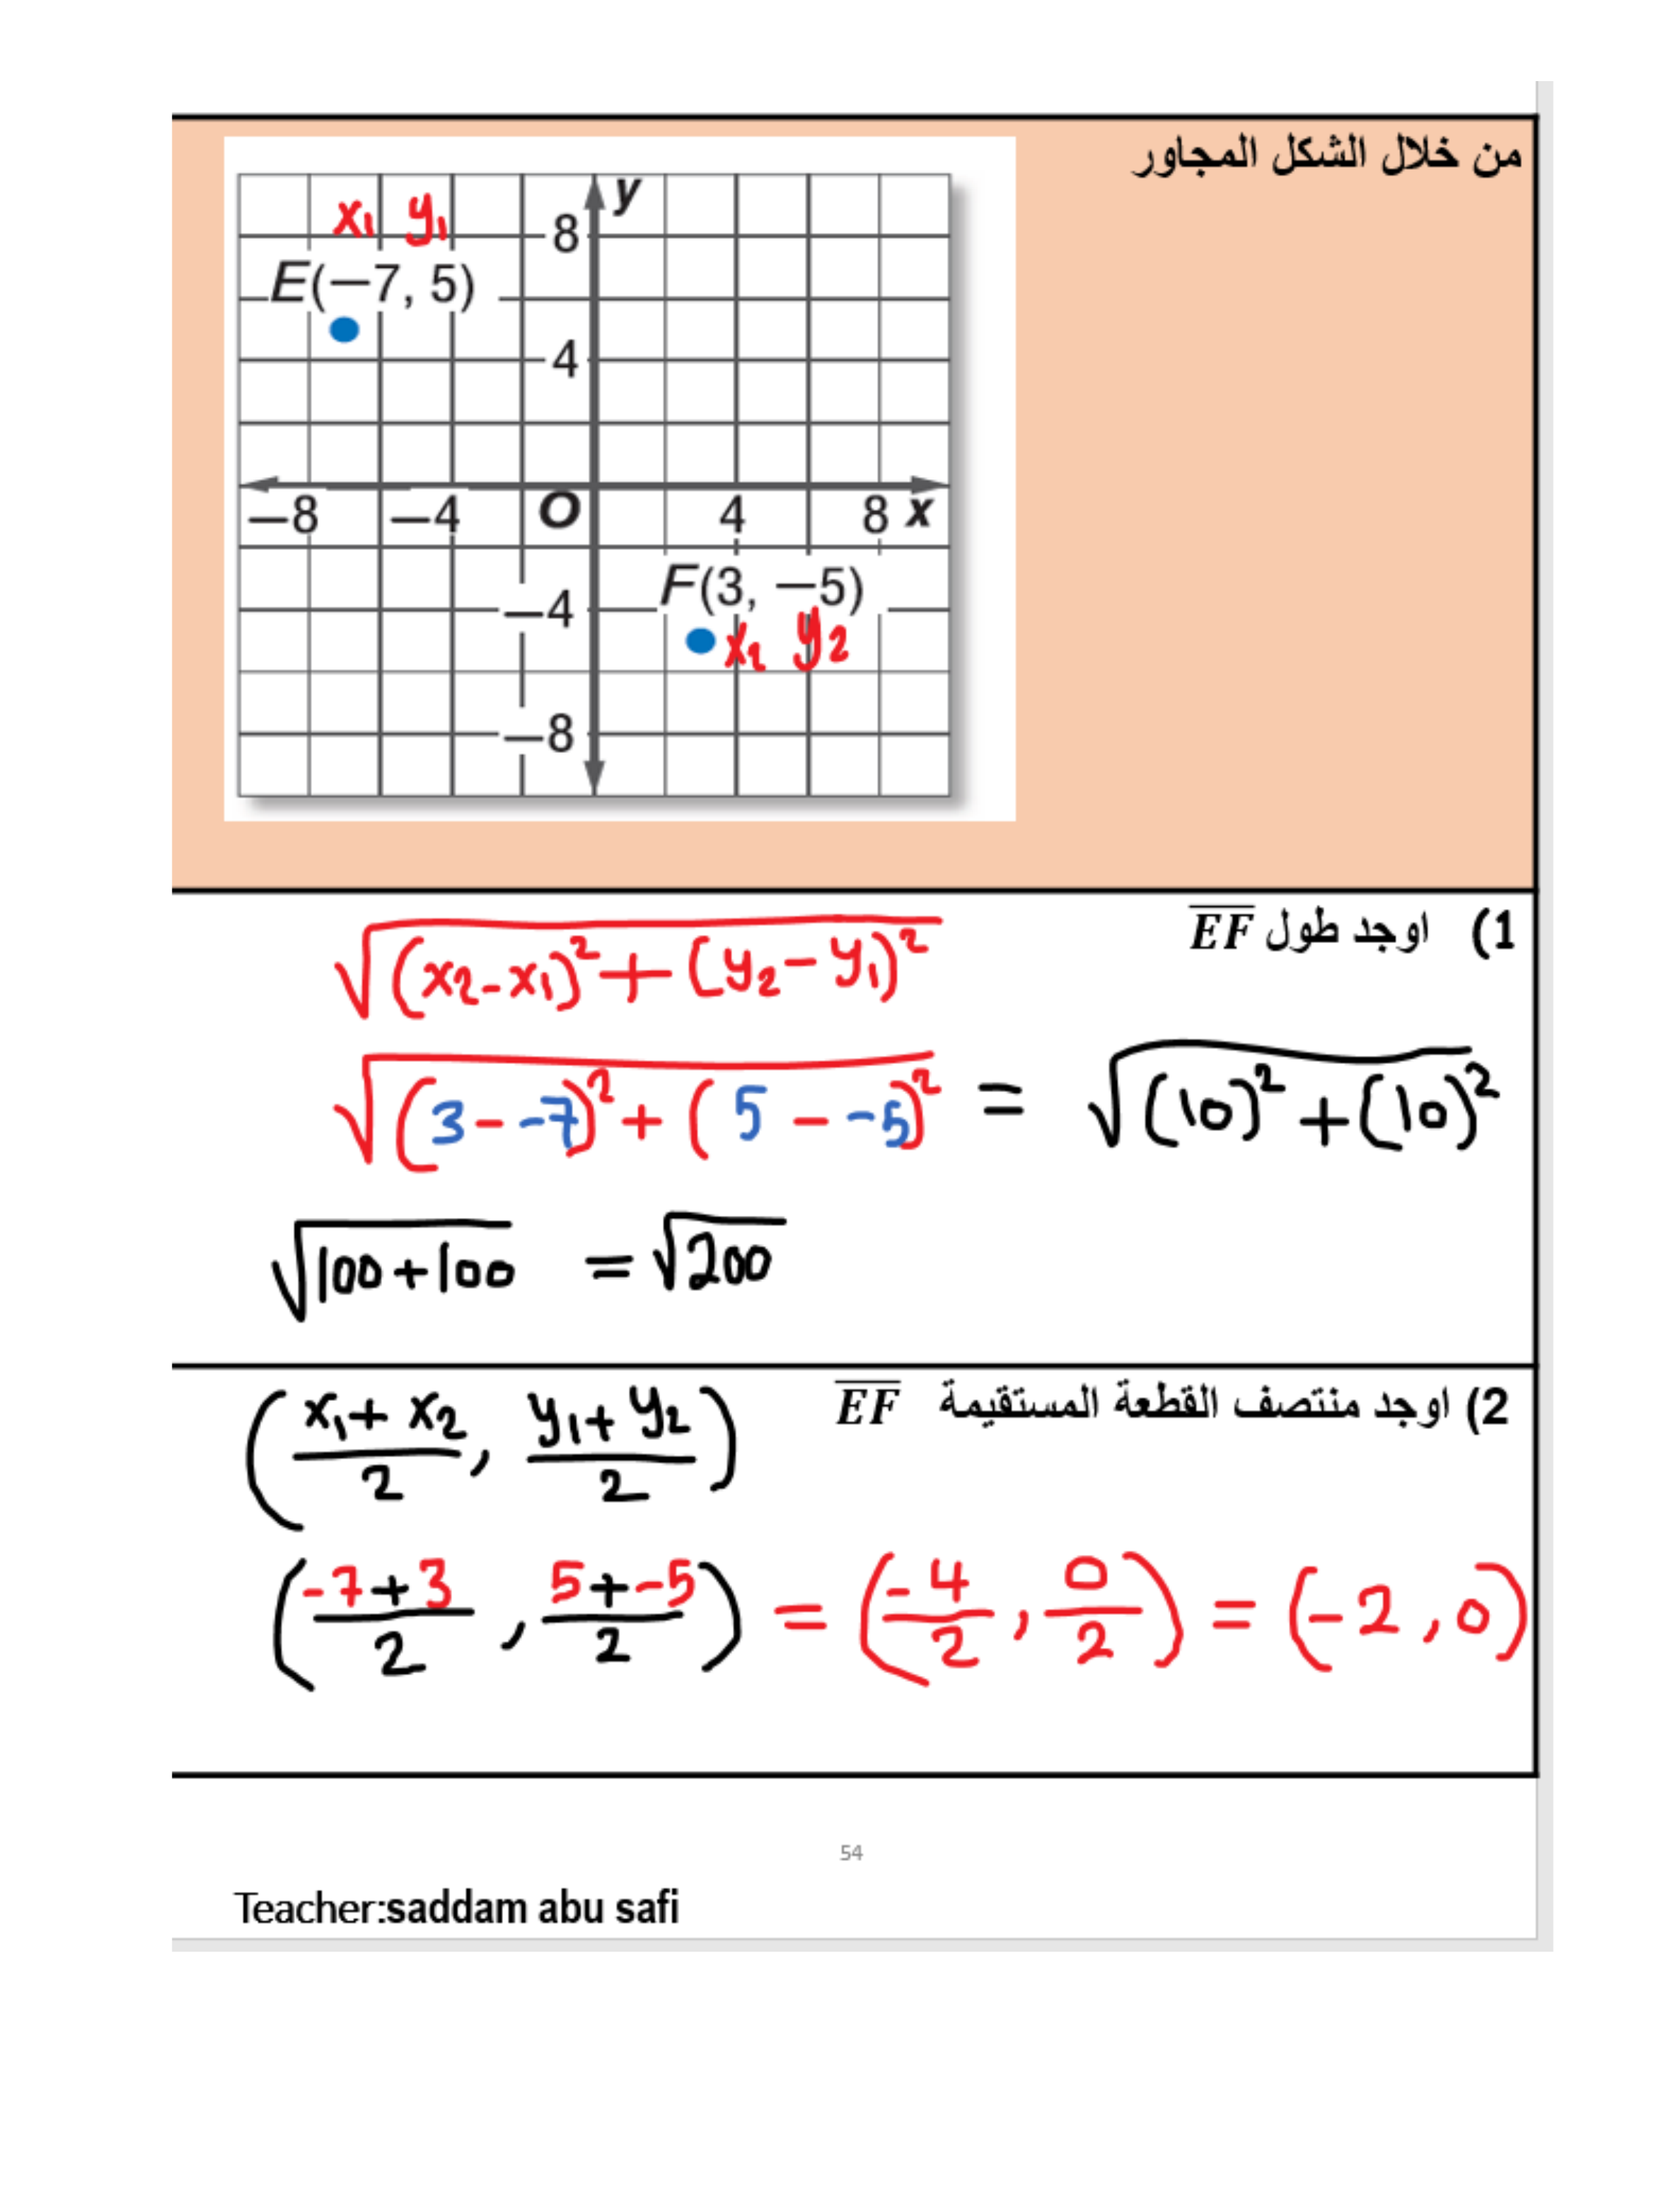 من خلال الشكل المجاور
x₁ y₁
y
8
E(−7, 5)
4
−8 −4 O 4 8 x
F(3, −5)
−4
x₂ y₂
−8
1) اوجد طول EF
√(x₂-x₁)²+(y₂-y₁)²
√(3--7)²+(5--5)² = √(10)²+(10)²
√100+100 = √200
2) اوجد منتصف القطعة المستقيمة EF
(x₁+x₂/2, y₁+y₂/2)
(-7+3/2, 5+-5/2) = (-4/2, 0/2) = (-2, 0)
54
Teacher:saddam abu safi